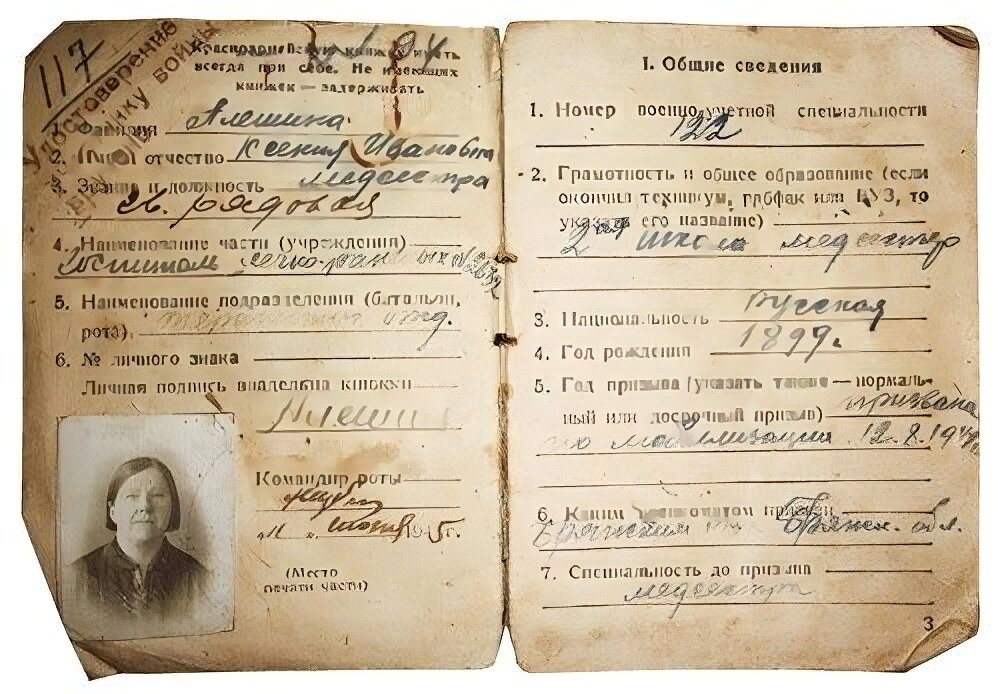 117
Удостоверение
войны
Красноармейскую книжку иметь
всегда при себе. Не имеющих
книжек — задерживать
Фамилия Алешина
2. Имя и отчество Ксения Ивановна
3. Звание и должность медсестра
рядовая
4. Наименование части (учреждения)
Госпиталь
5. Наименование подразделения (батальон,
рота)
6. № личного знака
Личная подпись владельца книжки
Алешин
Командир роты
(Место
печати части)
I. Общие сведения
1. Номер военно-учетной специальности
122
2. Грамотность и общее образование (если
окончил техникум, рабфак или ВУЗ, то
указать его название)
школа медсестер
3. Национальность Русская
4. Год рождения 1899г.
5. Год призыва (указать также — нормаль-
ный или досрочный призыв) призвана
по мобилизации
6. Каким военкоматом призван
Брянск. обл.
7. Специальность до призыва
медсестра
3